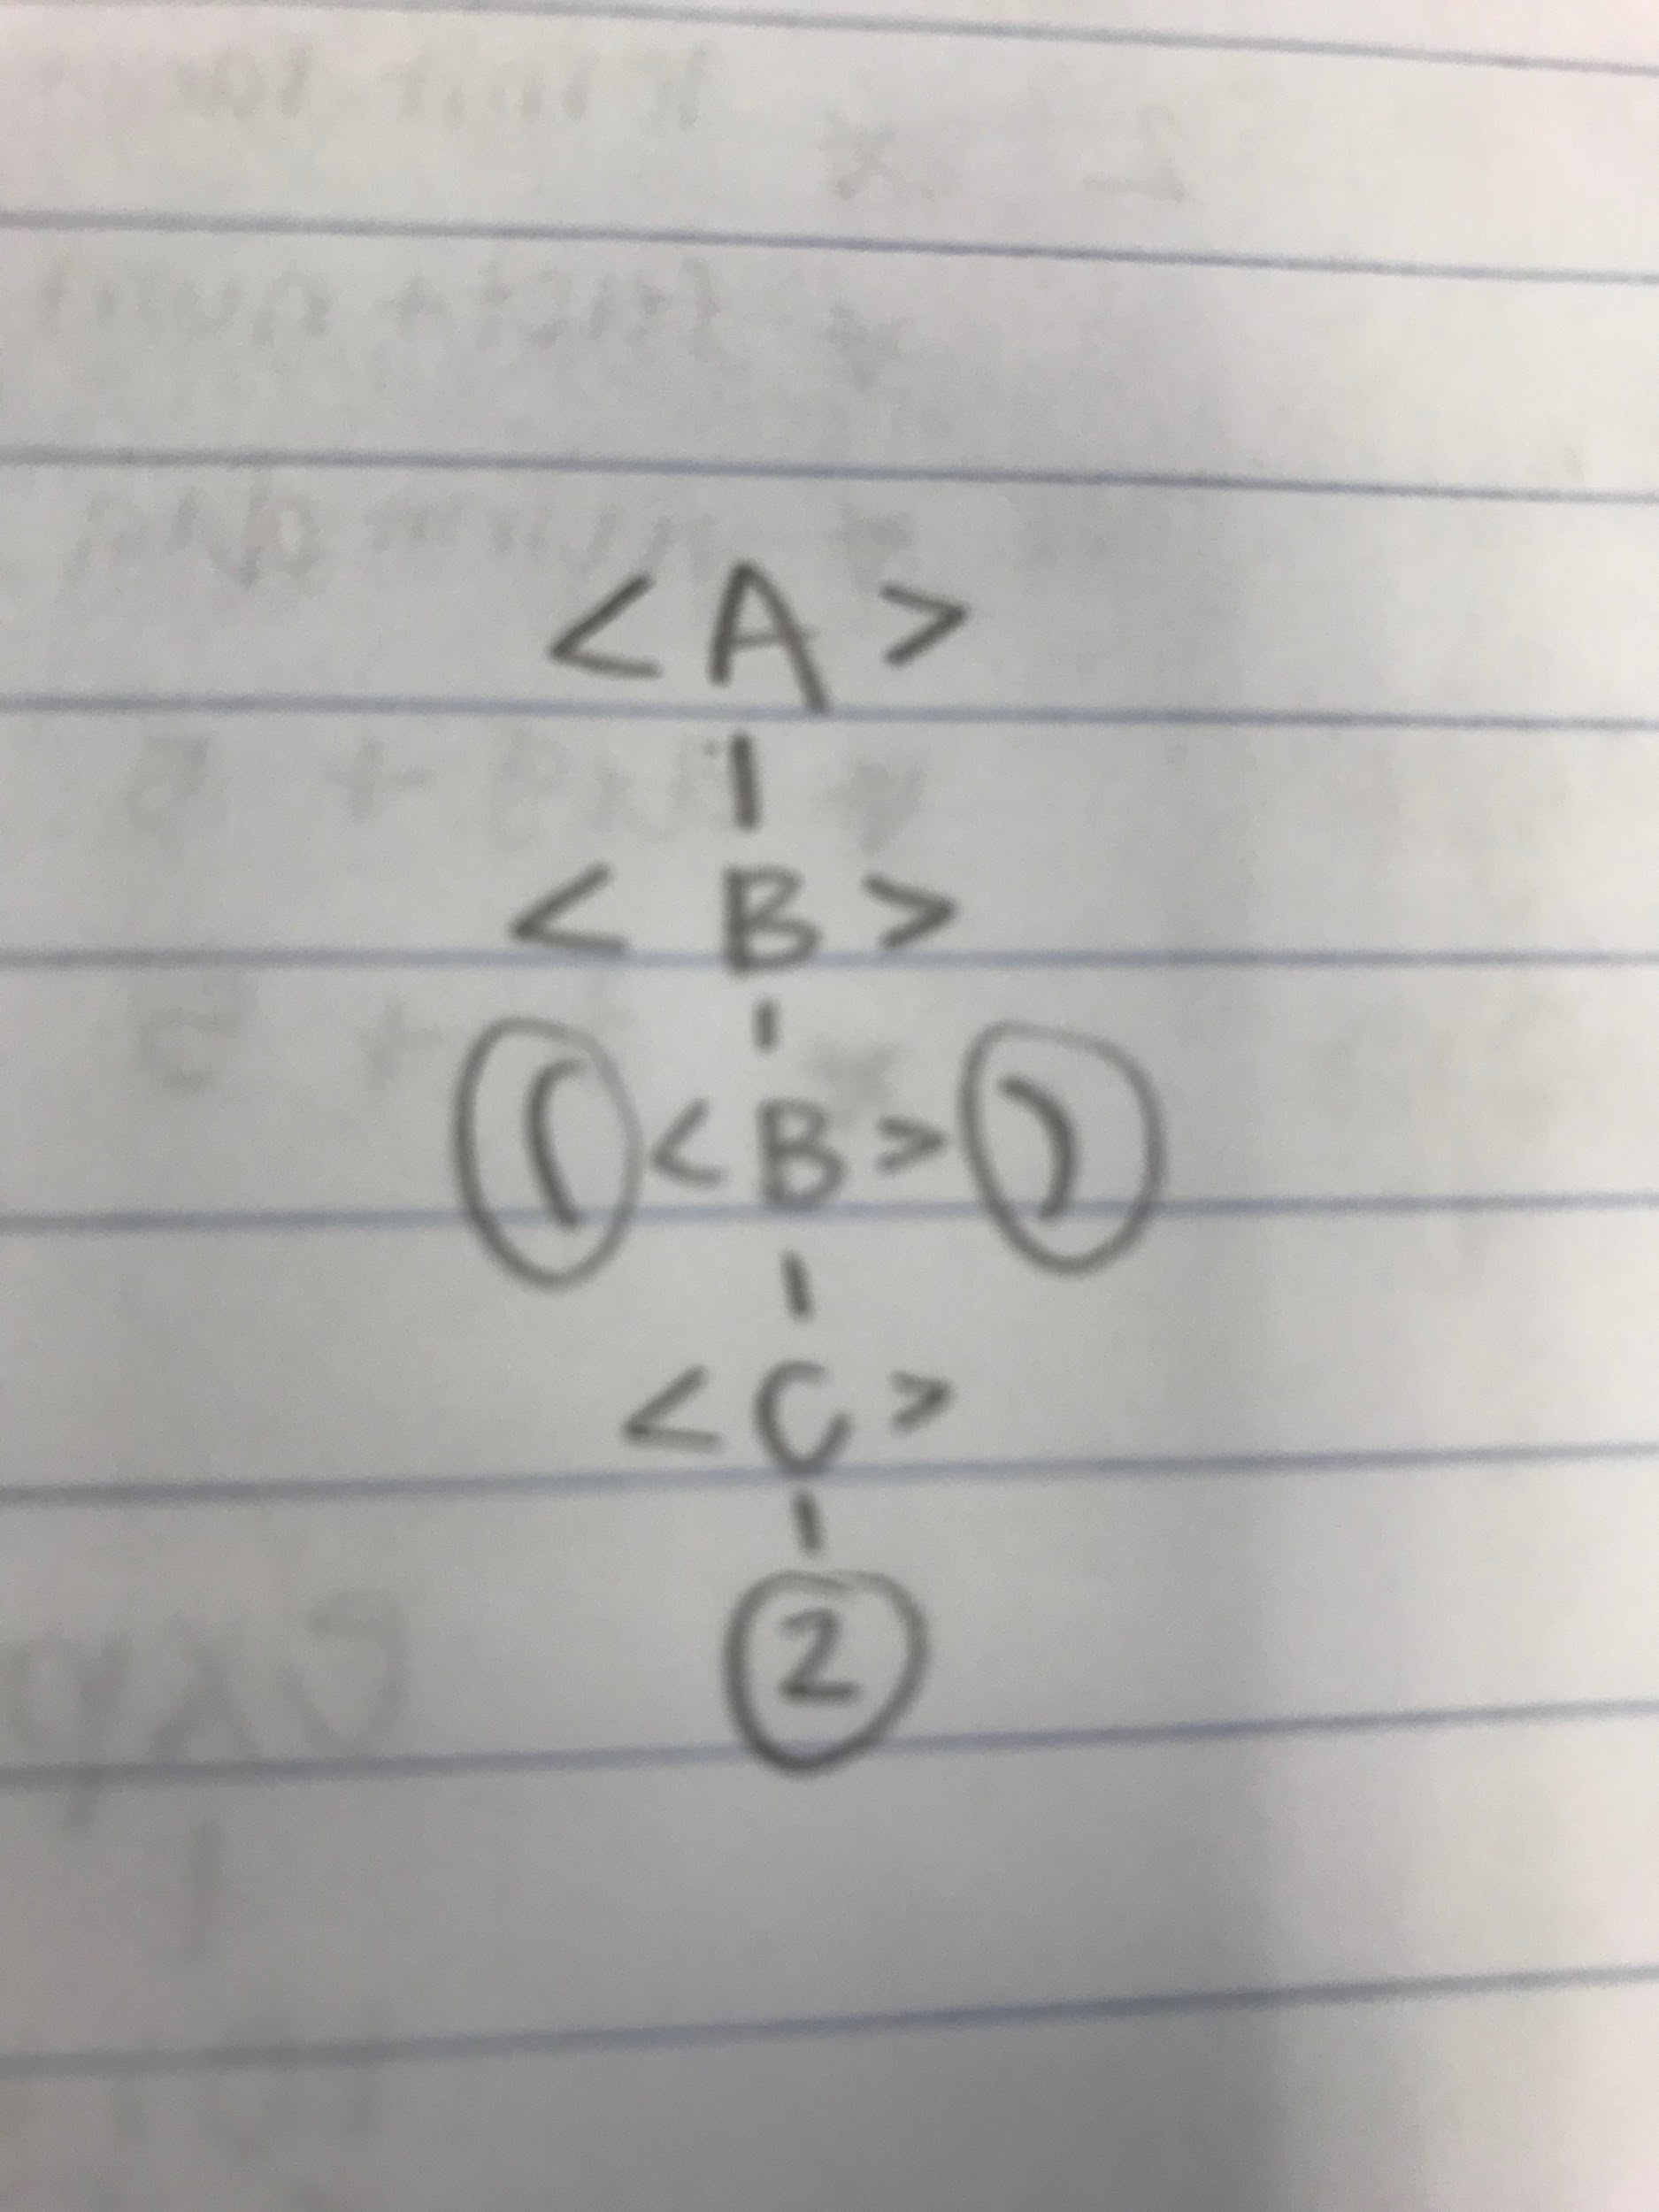 <A>
|
<B>
|
( <B> )
|
<C>
|
2